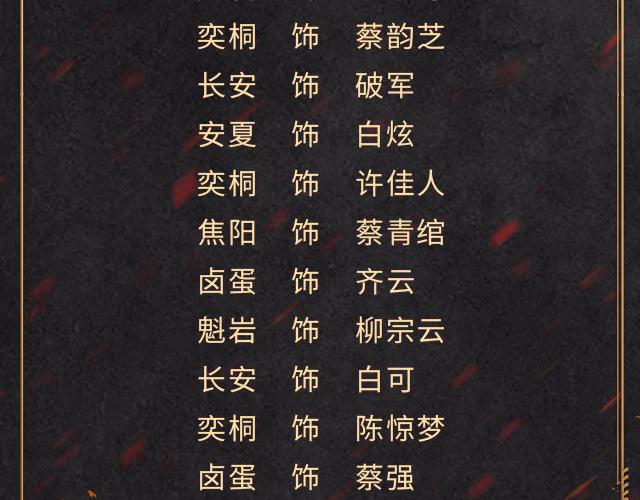 奕桐 饰 蔡韵芝
长安 饰 破军
安夏 饰 白炫
奕桐 饰 许佳人
焦阳 饰 蔡青绾
卤蛋 饰 齐云
魁岩 饰 柳宗云
长安 饰 白可
奕桐 饰 陈惊梦
卤蛋 饰 蔡强